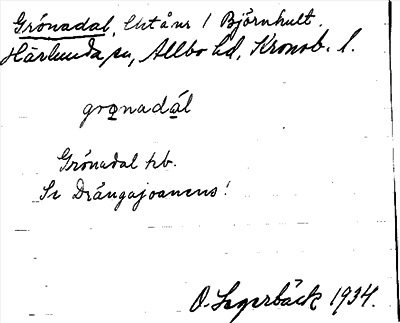 Grönadal, Ekt å nr 1 Björnhult.
Härlunda sn, Allbo hd, Kronob. l.
gro̲nadá̲l
Grönadal tb.
Se Drängajoanens!
O. Lagerbäck 1934.